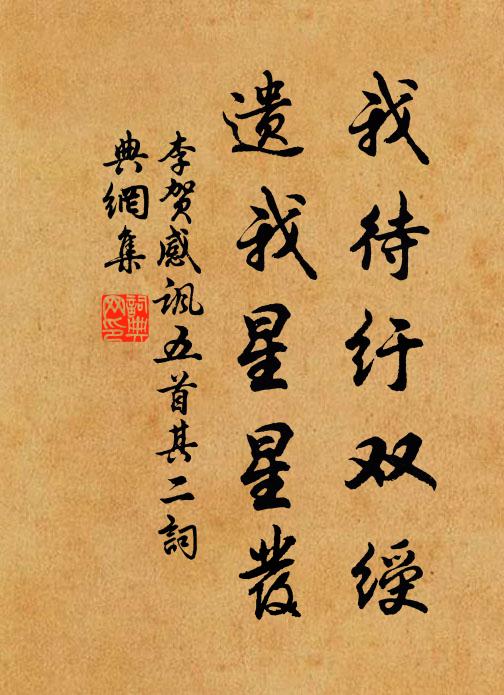 我待纡双绶
遗我星星發
李贺感讽五首其二詞
典網集
詞典网印